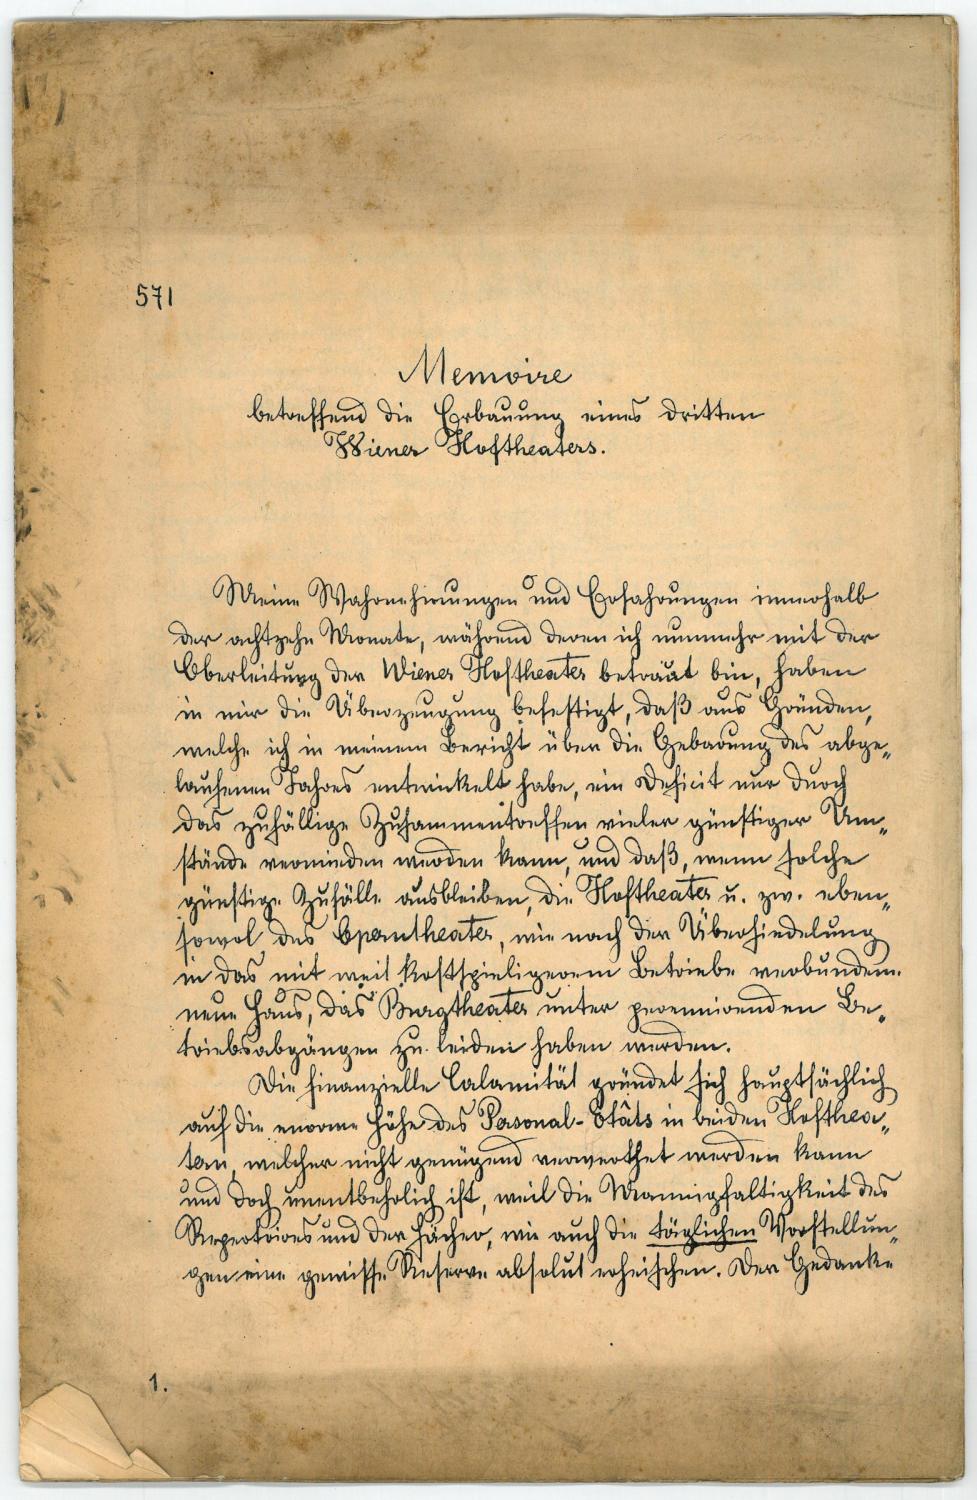 571
Memoire
betreffend die Erbauung eines dritten
Wiener Hoftheaters.
Meine Wahrnehmungen und Erfahrungen innerhalb
der achtzehn Monate, während deren ich nunmehr mit der
Oberleitung der Wiener Hoftheater betraut bin, haben
in mir die Überzeugung befestigt, daß aus Gründen,
welche ich in meinem Bericht über die Gebarung des abge„
laufenen Jahres entwickelt habe, ein Deficit nur durch
das zufällige Zusammentreffen vieler günstiger Um„
stände vermieden werden kann, und daß, wenn solche
günstige Zufälle ausbleiben, die Hoftheater u. zw. eben„
sowol das Operntheater, wie nach der Übersiedelung
in das mit weit kostspieligerem Betriebe verbundene
neue Haus, das Burgtheater unter perennirenden Be„
triebsabgängen zu leiden haben werden.
Die finanzielle Calamität gründet sich hauptsächlich
auf die enorme Höhe des Personal-Etâts in beiden Hofthea„
tern, welcher nicht genügend verwerthet werden kann
und doch unentbehrlich ist, weil die Mannigfaltigkeit des
Repertoires und der Fächer, wie auch die täglichen Vorstellun„
gen eine gewisse Reserve absolut erheischen. Der Gedanke
1.